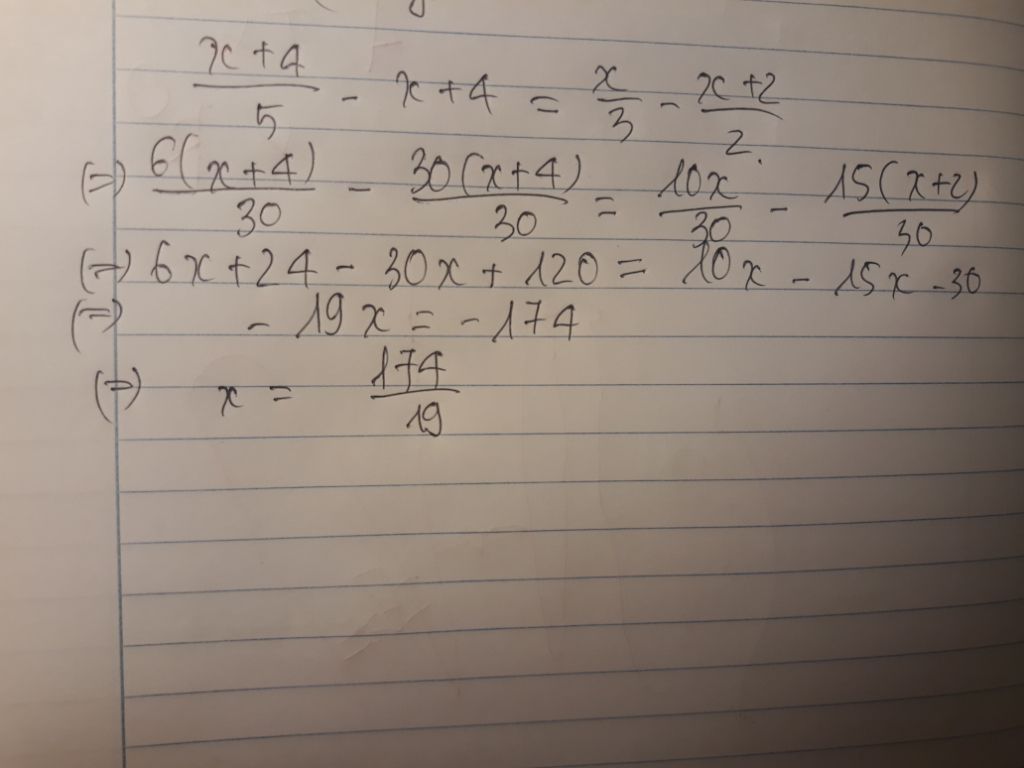 (x+4)/5 - x+4 = x/3 - (x+2)/2.
(=) 6(x+4)/30 - 30(x+4)/30 = 10x/30 - 15(x+2)/30
(=) 6x+24 - 30x + 120 = 10x - 15x - 30
(=) - 19x = - 174
(=) x = 174/19